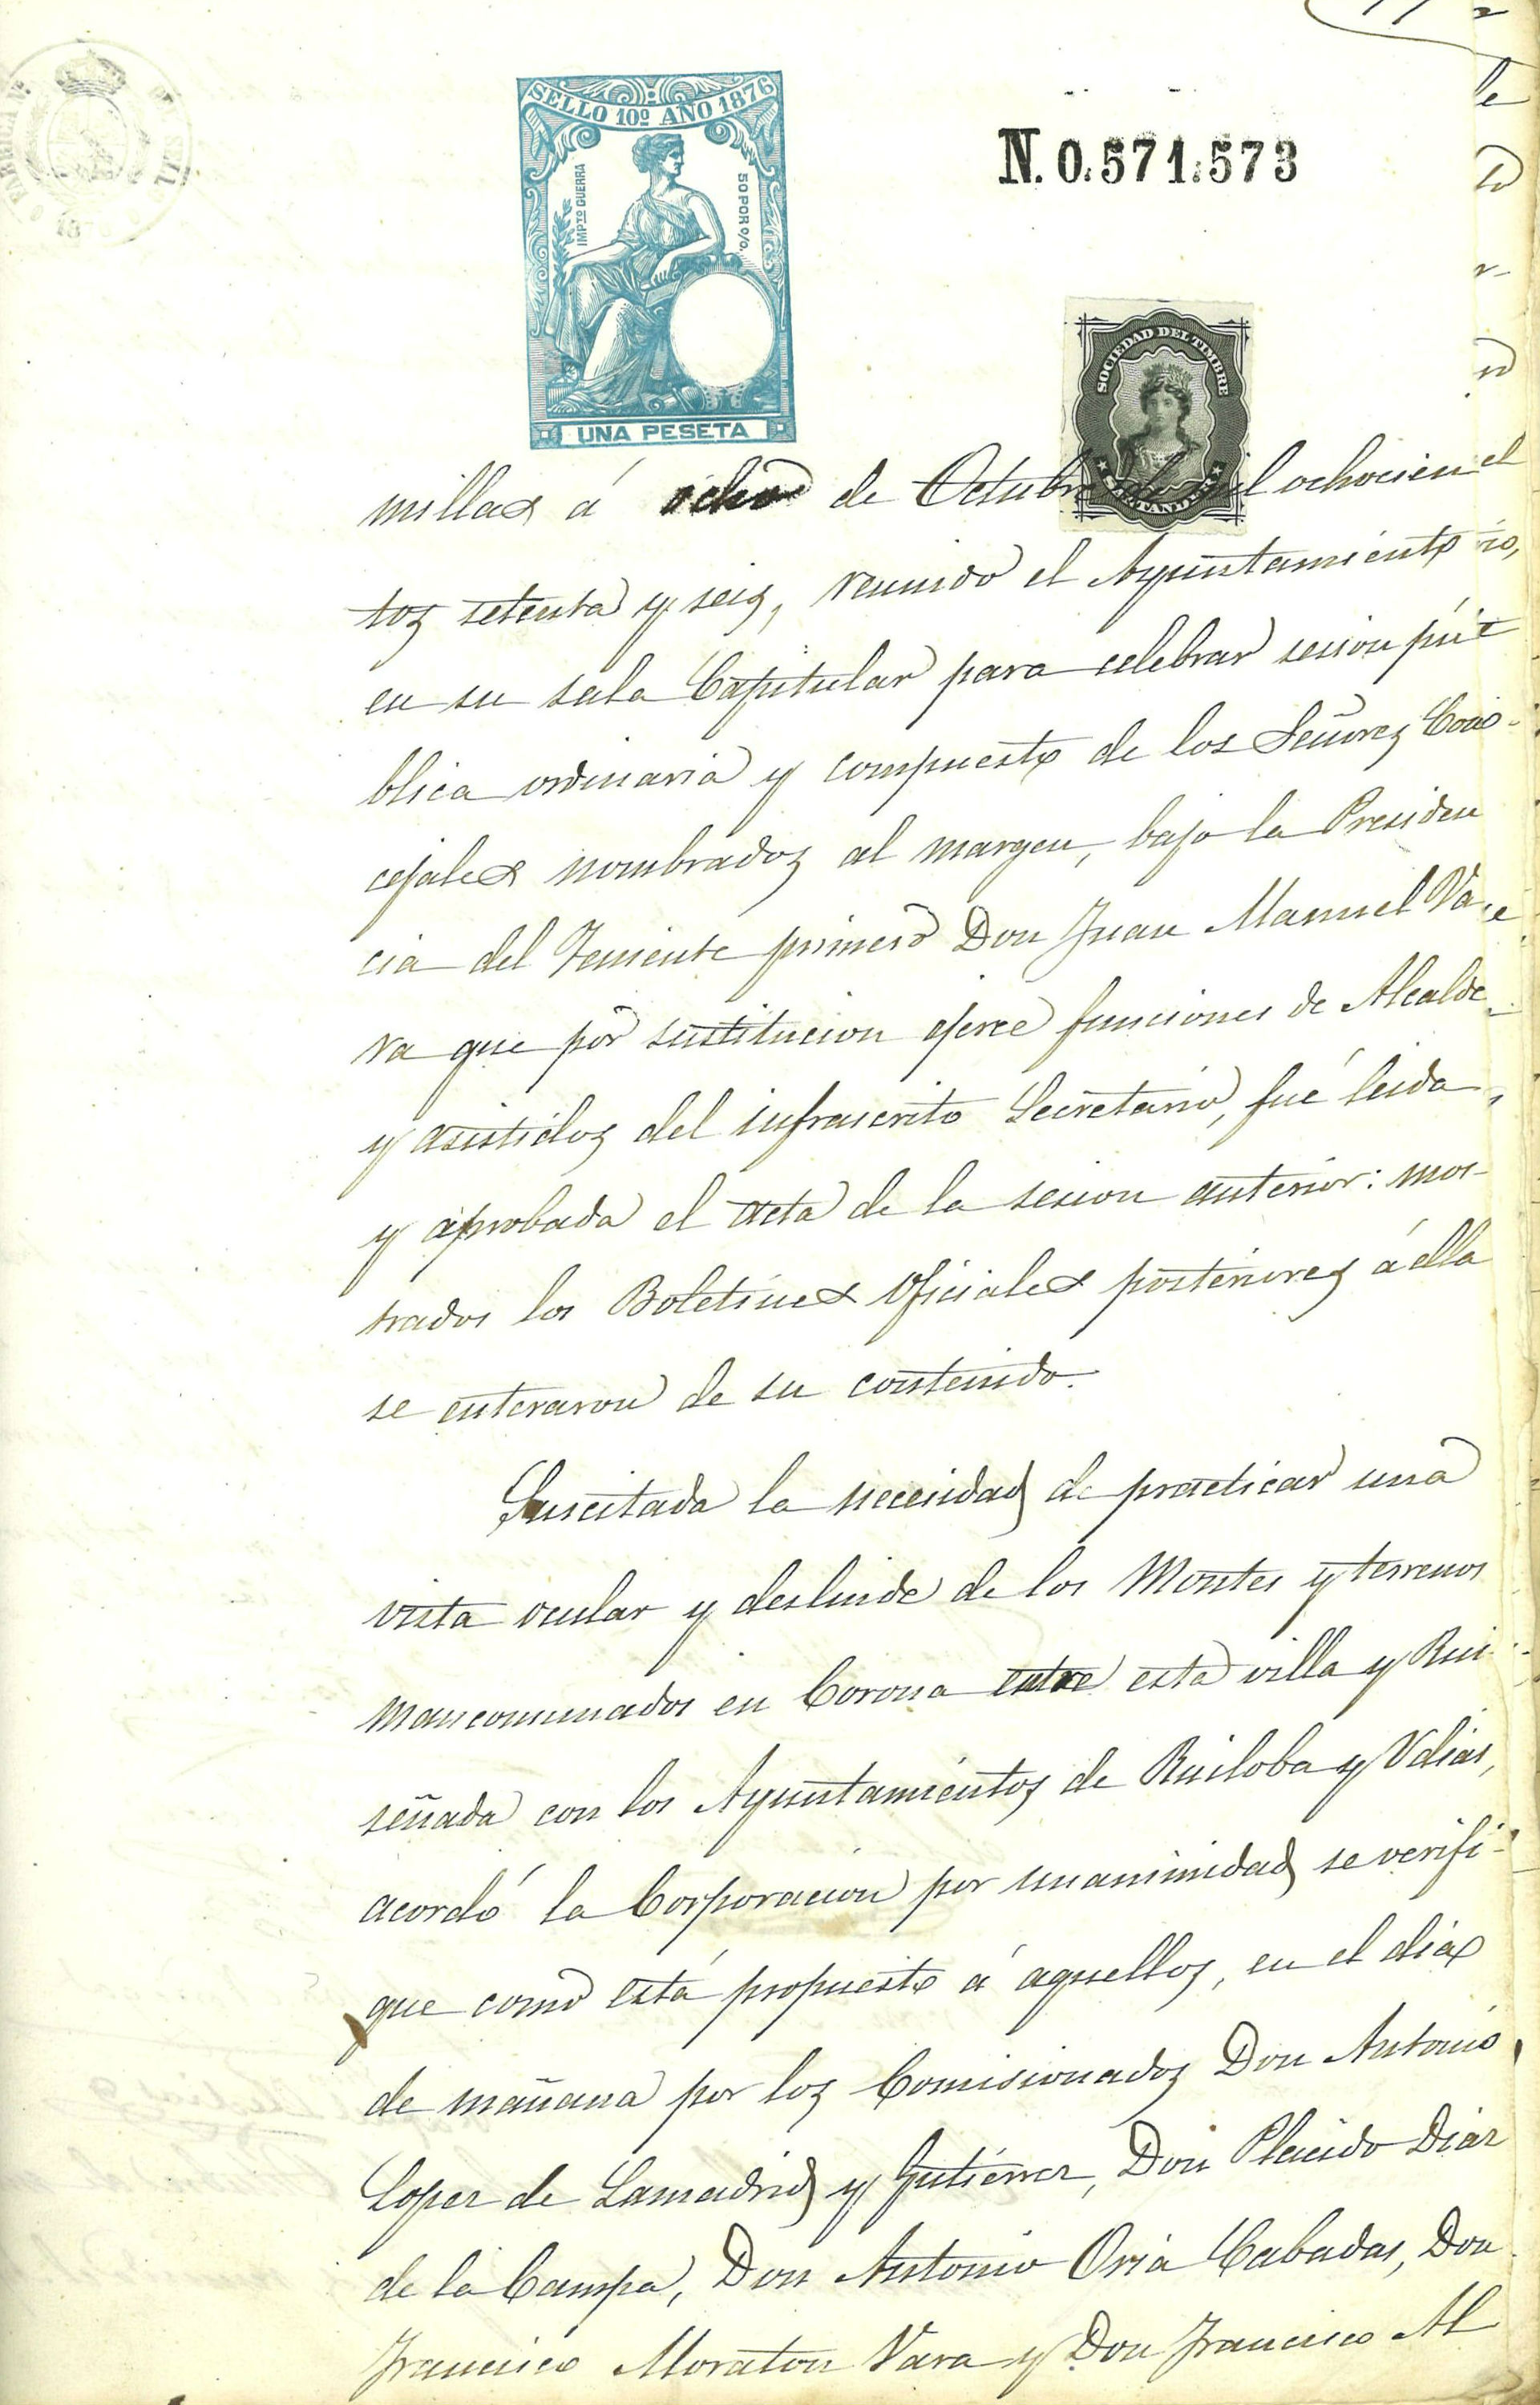 SELLO 10º AÑO 1876
IMPTO GUERRA
50 POR 0/0.
UNA PESETA
N. 0.571.573
SOCIEDAD DEL TIMBRE
millas á ocho de Octubre de mil ochocien
tos setenta y seis, reunido el Ayuntamiento
en su sala Capitular para celebrar sesion pú
blica ordinaria y compuesto de los Señores Con-
cejales nombrados al margen, bajo la Presiden
cia del Teniente primero Don Juan Manuel Va
ra que por sustitucion ejerce funciones de Alcalde
y asistidos del infrascrito Secretario, fué leida
y aprobada el acta de la sesion anterior: mos-
trados los Boletines Oficiales posteriores á ella
se enteraron de su contenido.
Suscitada la necesidad de practicar una
vista ocular y deslinde de los Montes y terrenos
mancomunados en Corona entre esta villa y Rui
señada con los Ayuntamientos de Ruiloba y Udias,
acordó la Corporacion por unanimidad se verifi-
que como está propuesto á aquellos, en el dia
de mañana por los Comisionados Don Antonio
Lopez de Lamadrid y Gutiérrez, Don Placido Diaz
de la Campa, Don Antonio Oria Cabadas, Don
Francisco Moraton Vara y Don Francisco Al